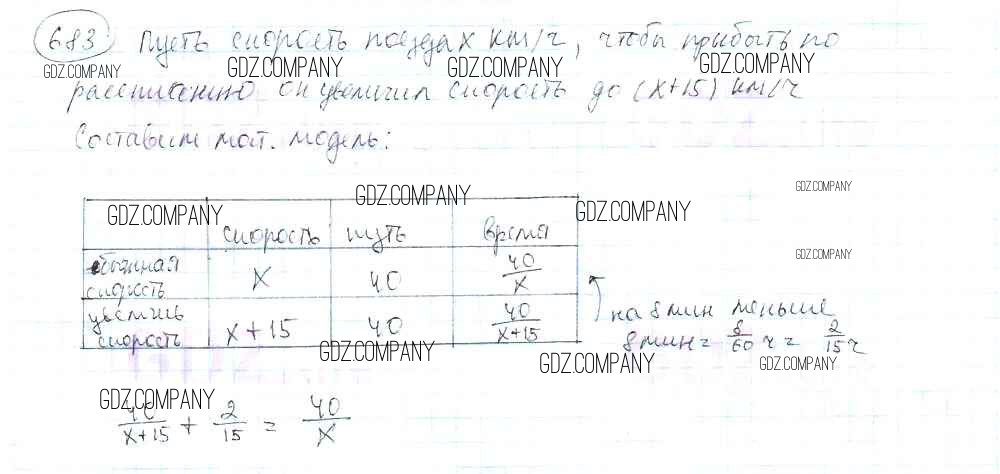 683 Пусть скорость поезда x км/ч, чтобы прибыть по
GDZ.COMPANY GDZ.COMPANY GDZ.COMPANY GDZ.COMPANY
расписанию он увеличил скорость до (x+15) км/ч
Составим мат. модель:
GDZ.COMPANY GDZ.COMPANY
GDZ.COMPANY GDZ.COMPANY
скорость путь время
обычная скорость x 40 40/x
GDZ.COMPANY
увелич скорость x+15 40 40/x+15
на 8 мин меньше
8 мин = 8/60 ч = 2/15 ч
GDZ.COMPANY GDZ.COMPANY GDZ.COMPANY
GDZ.COMPANY
40/x+15 + 2/15 = 40/x